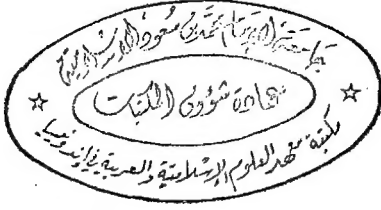 جامعة الإمام محمد بن سعود الإسلامية
عمادة شؤون المكتبات
مكتبة معهد العلوم الإسلامية والعربية في إندونيسيا